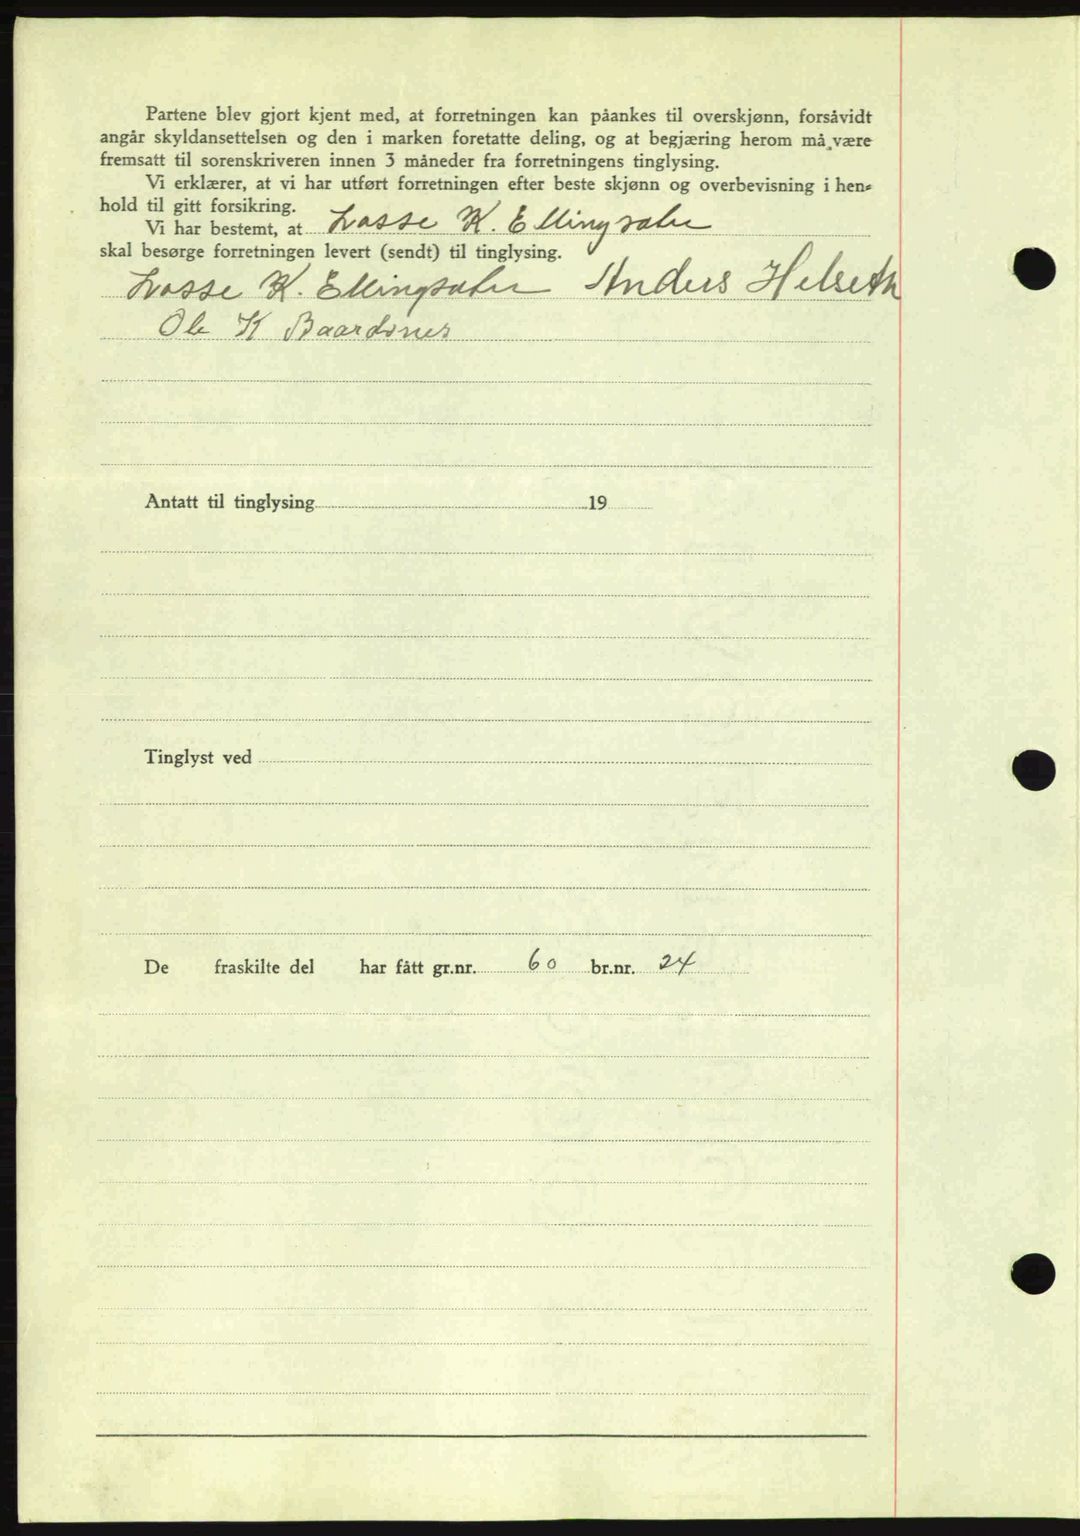 Partene blev gjort kjent med, at forretningen kan påankes til overskjønn, forsåvidt
angår skyldansettelsen og den i marken foretatte deling, og at begjæring herom må være
fremsatt til sorenskriveren innen 3 måneder fra forretningens tinglysing.
Vi erklærer, at vi har utført forretningen efter beste skjønn og overbevisning i hen-
hold til gitt forsikring.
Vi har bestemt, at Lasse K. Ellingsæter
skal besørge forretningen levert (sendt) til tinglysing.
Lasse K. Ellingsæter Anders Helseth
Ole K Baardsnes
Antatt til tinglysing 19
Tinglyst ved
De fraskilte del har fått gr.nr. 60 br.nr. 24